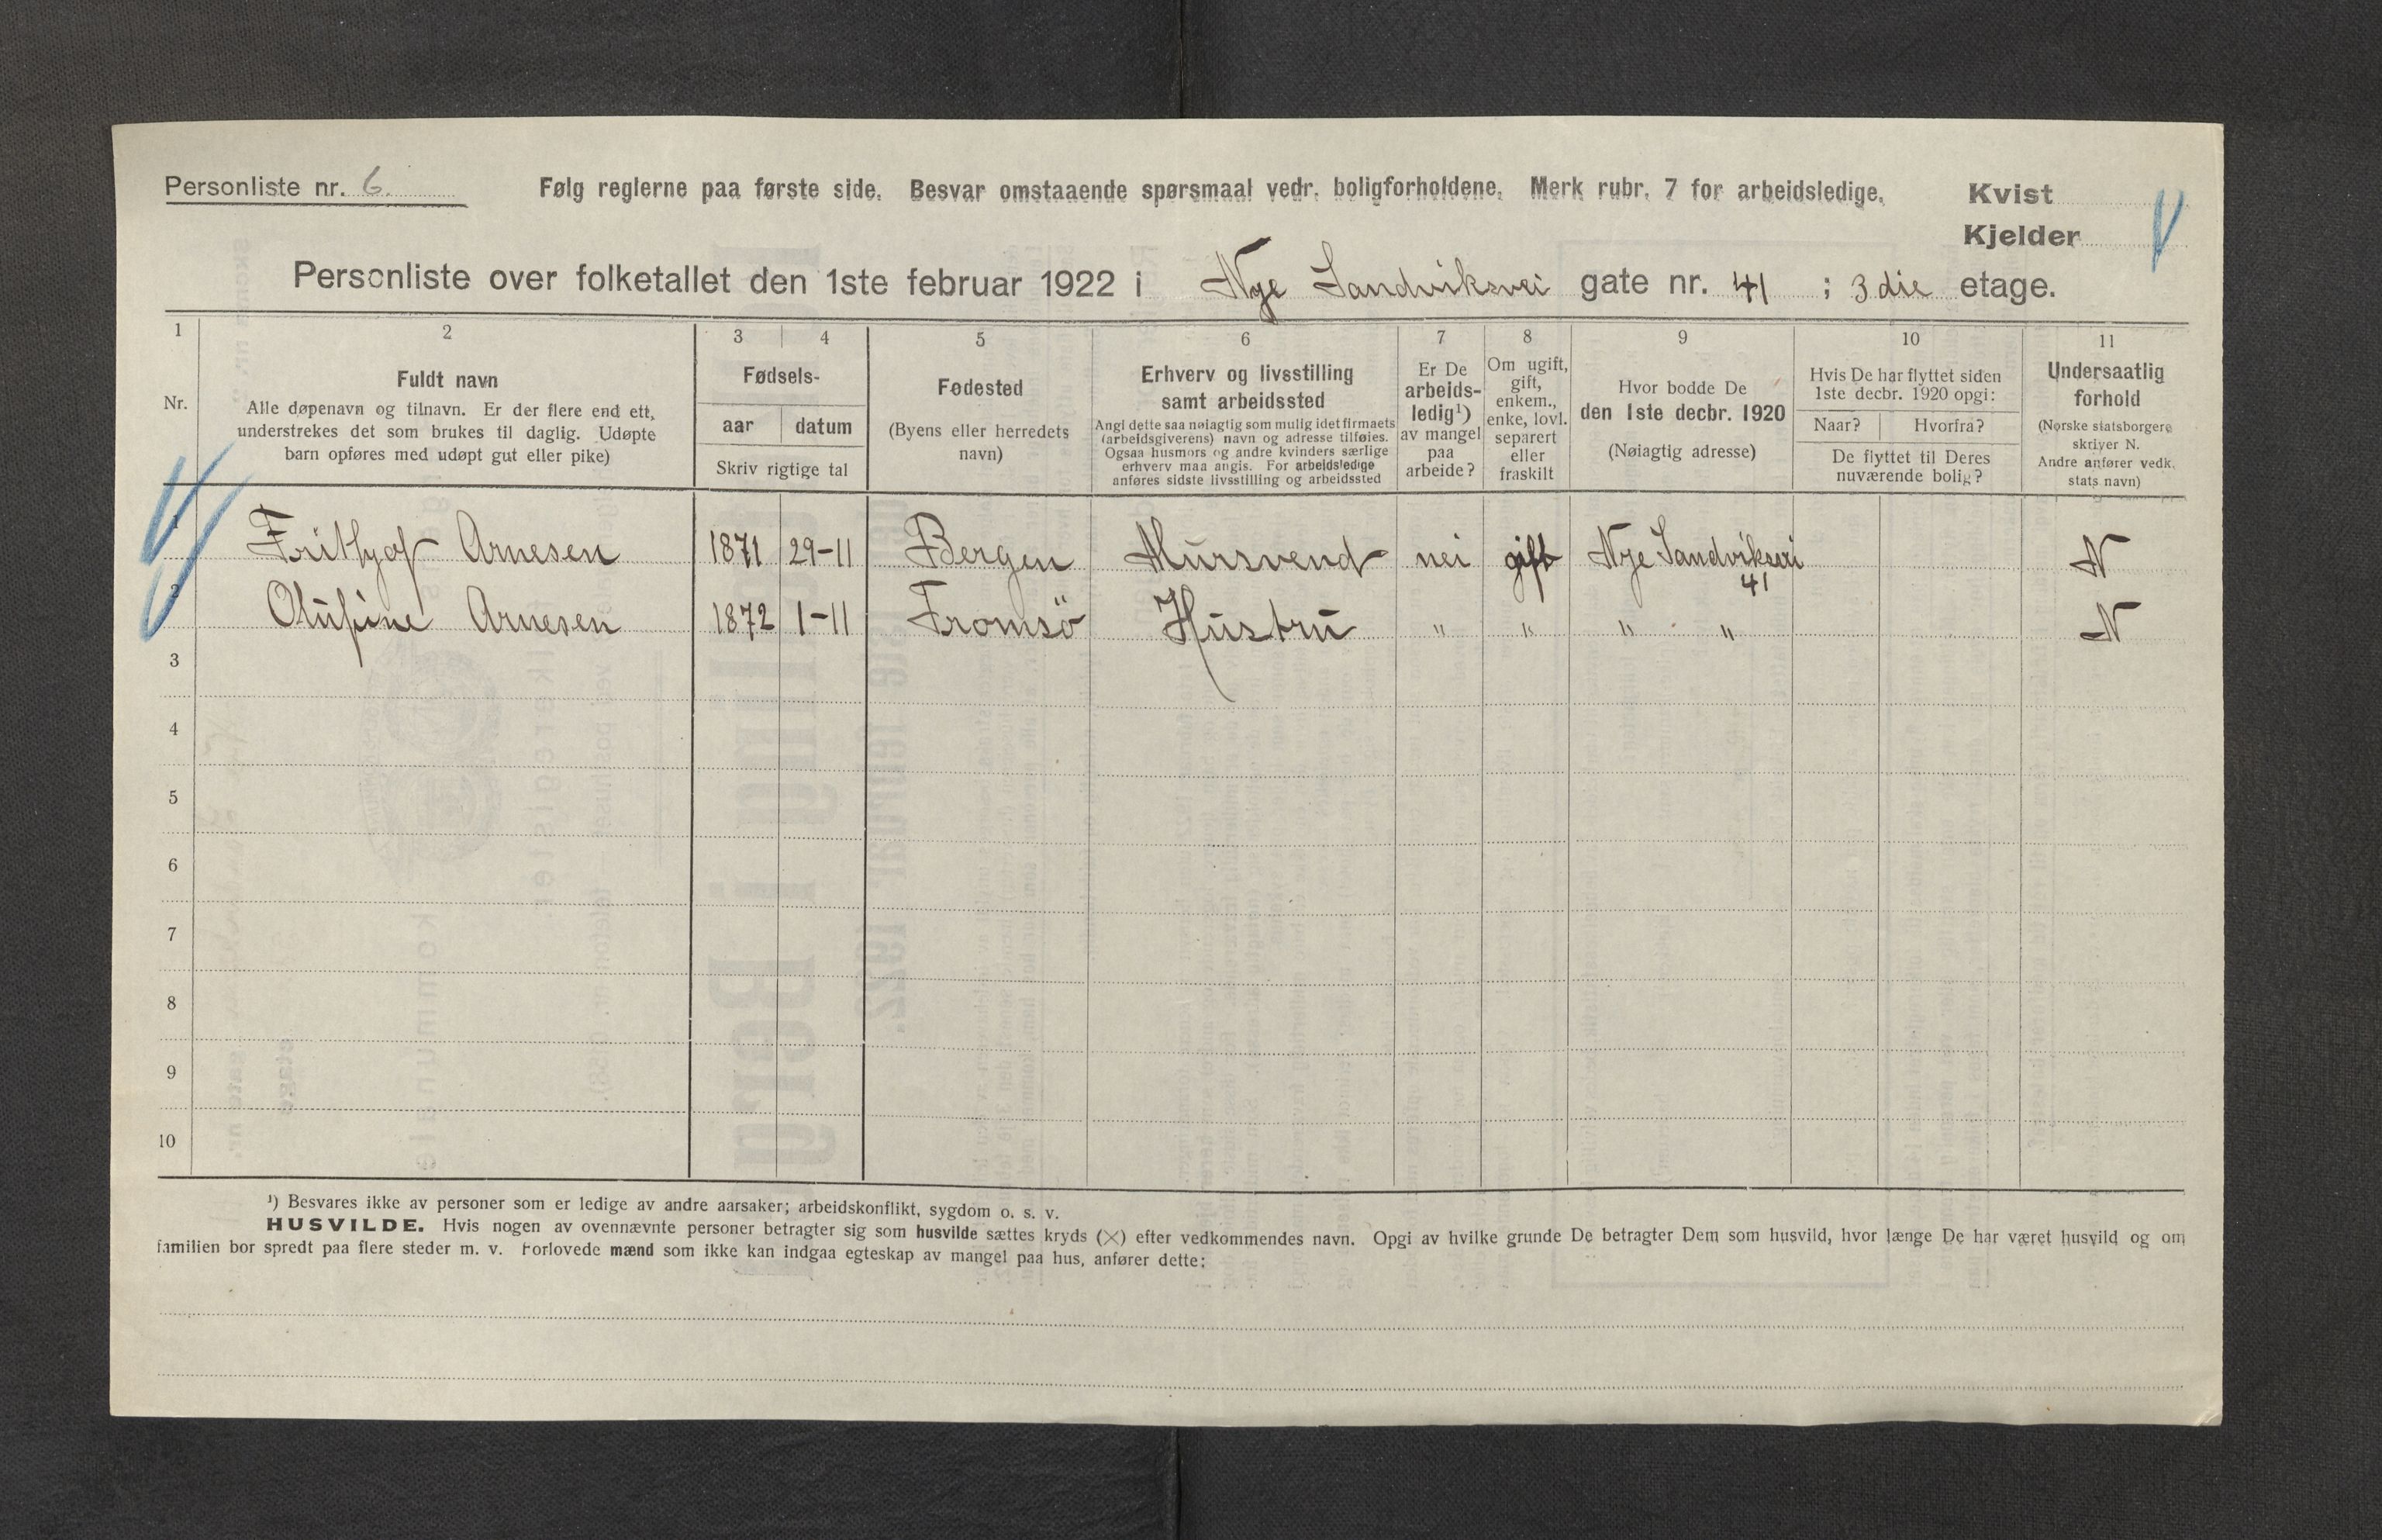 Personliste nr. 6.
Følg reglerne paa første side. Besvar omstaaende spørsmaal vedr. boligforholdene. Merk rubr. 7 for arbeidsledige.
Kvist
Kjelder
Personliste over folketallet den 1ste februar 1922 i Nye Sandviksvei gate nr. 41 ; 3 die etage.
1 2 3 4 5 6 7 8 9 10 11
Nr.
Fuldt navn
Alle døpenavn og tilnavn. Er der flere end ett,
understrekes det som brukes til daglig. Udøpte
barn opføres med udøpt gut eller pike)
Fødsels-
aar datum
Skriv rigtige tal
Fødested
(Byens eller herredets
navn)
Erhverv og livsstilling
samt arbeidssted
Angi dette saa nøiagtig som mulig idet firmaets
(arbeidsgiverens) navn og adresse tilføies.
Ogsaa husmors og andre kvinders særlige
erhverv maa angis. For arbeidsledige
anføres sidste livsstilling og arbeidssted
Er De
arbeids-
ledig¹)
av mangel
paa
arbeide?
Om ugift,
gift,
enkem.,
enke, lovl.
separert
eller
fraskilt
Hvor bodde De
den 1ste decbr. 1920
(Nøiagtig adresse)
Hvis De har flyttet siden
1ste decbr. 1920 opgi:
Naar? Hvorfra?
De flyttet til Deres
nuværende bolig?
Undersaatlig
forhold
(Norske statsborgere
skriver N.
Andre anfører vedk.
stats navn)
1 Frithjof Arnesen 1871 29-11 Bergen Mursvend nei gift Nye Sandviksvei 41 N
2 Olufine Arnesen 1872 1-11 Tromsö Hustru " " " " N
3
4
5
6
7
8
9
10
¹) Besvares ikke av personer som er ledige av andre aarsaker; arbeidskonflikt, sygdom o. s. v.
HUSVILDE. Hvis nogen av ovennævnte personer betragter sig som husvilde sættes kryds (×) efter vedkommendes navn. Opgi av hvilke grunde De betragter Dem som husvild, hvor længe De har været husvild og om
familien bor spredt paa flere steder m. v. Forlovede mænd som ikke kan indgaa egteskap av mangel paa hus, anfører dette: